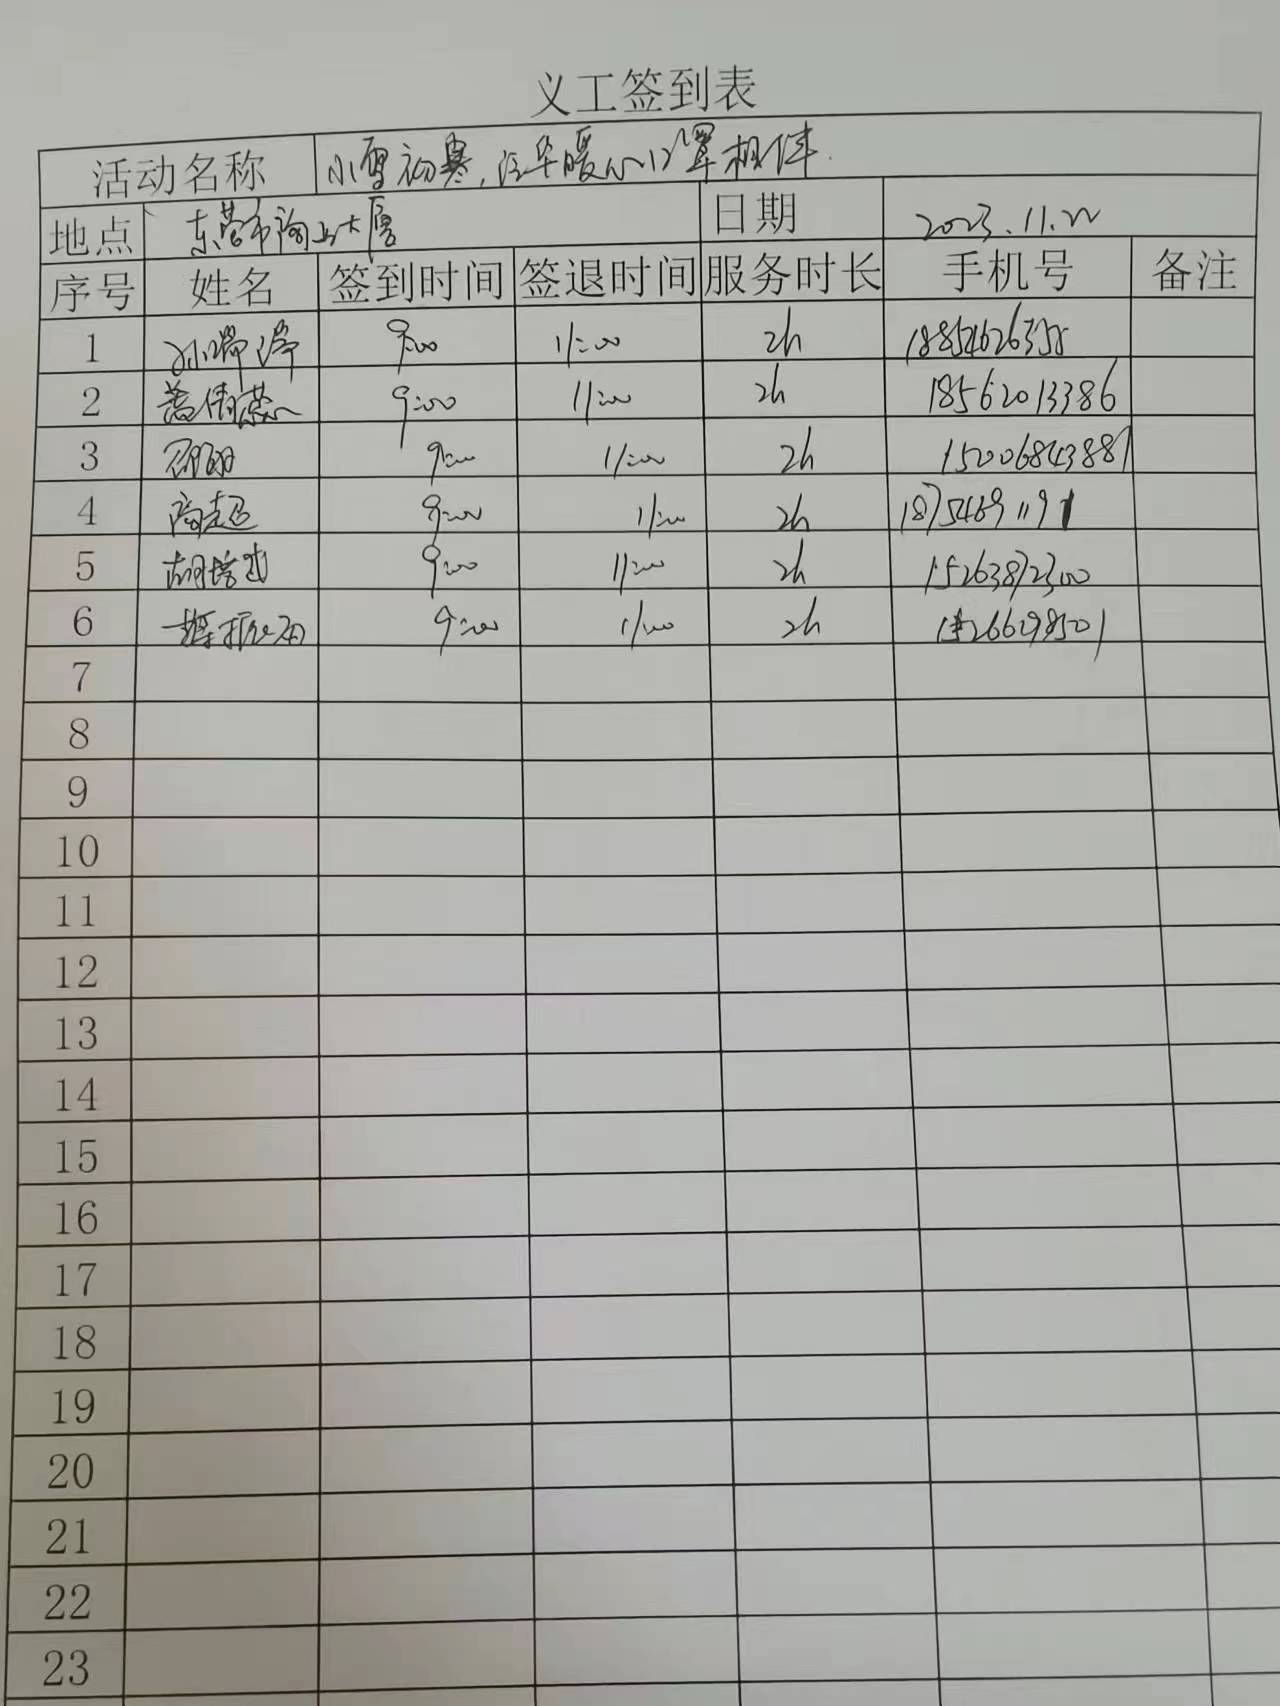 义工签到表
活动名称 小雪初寒,汶华暖心口罩相伴.
地点 东营市陶上大厦 日期 2023.11.22
序号 姓名 签到时间 签退时间 服务时长 手机号 备注
1 9:00 11:00 2h
2 9:00 11:00 2h 18562013386
3 9:00 11:00 2h 15006843881
4 商超 9:00 11:00 2h
5 9:00 11:00 2h 15263872300
6 9:00 11:00 2h
7
8
9
10
11
12
13
14
15
16
17
18
19
20
21
22
23